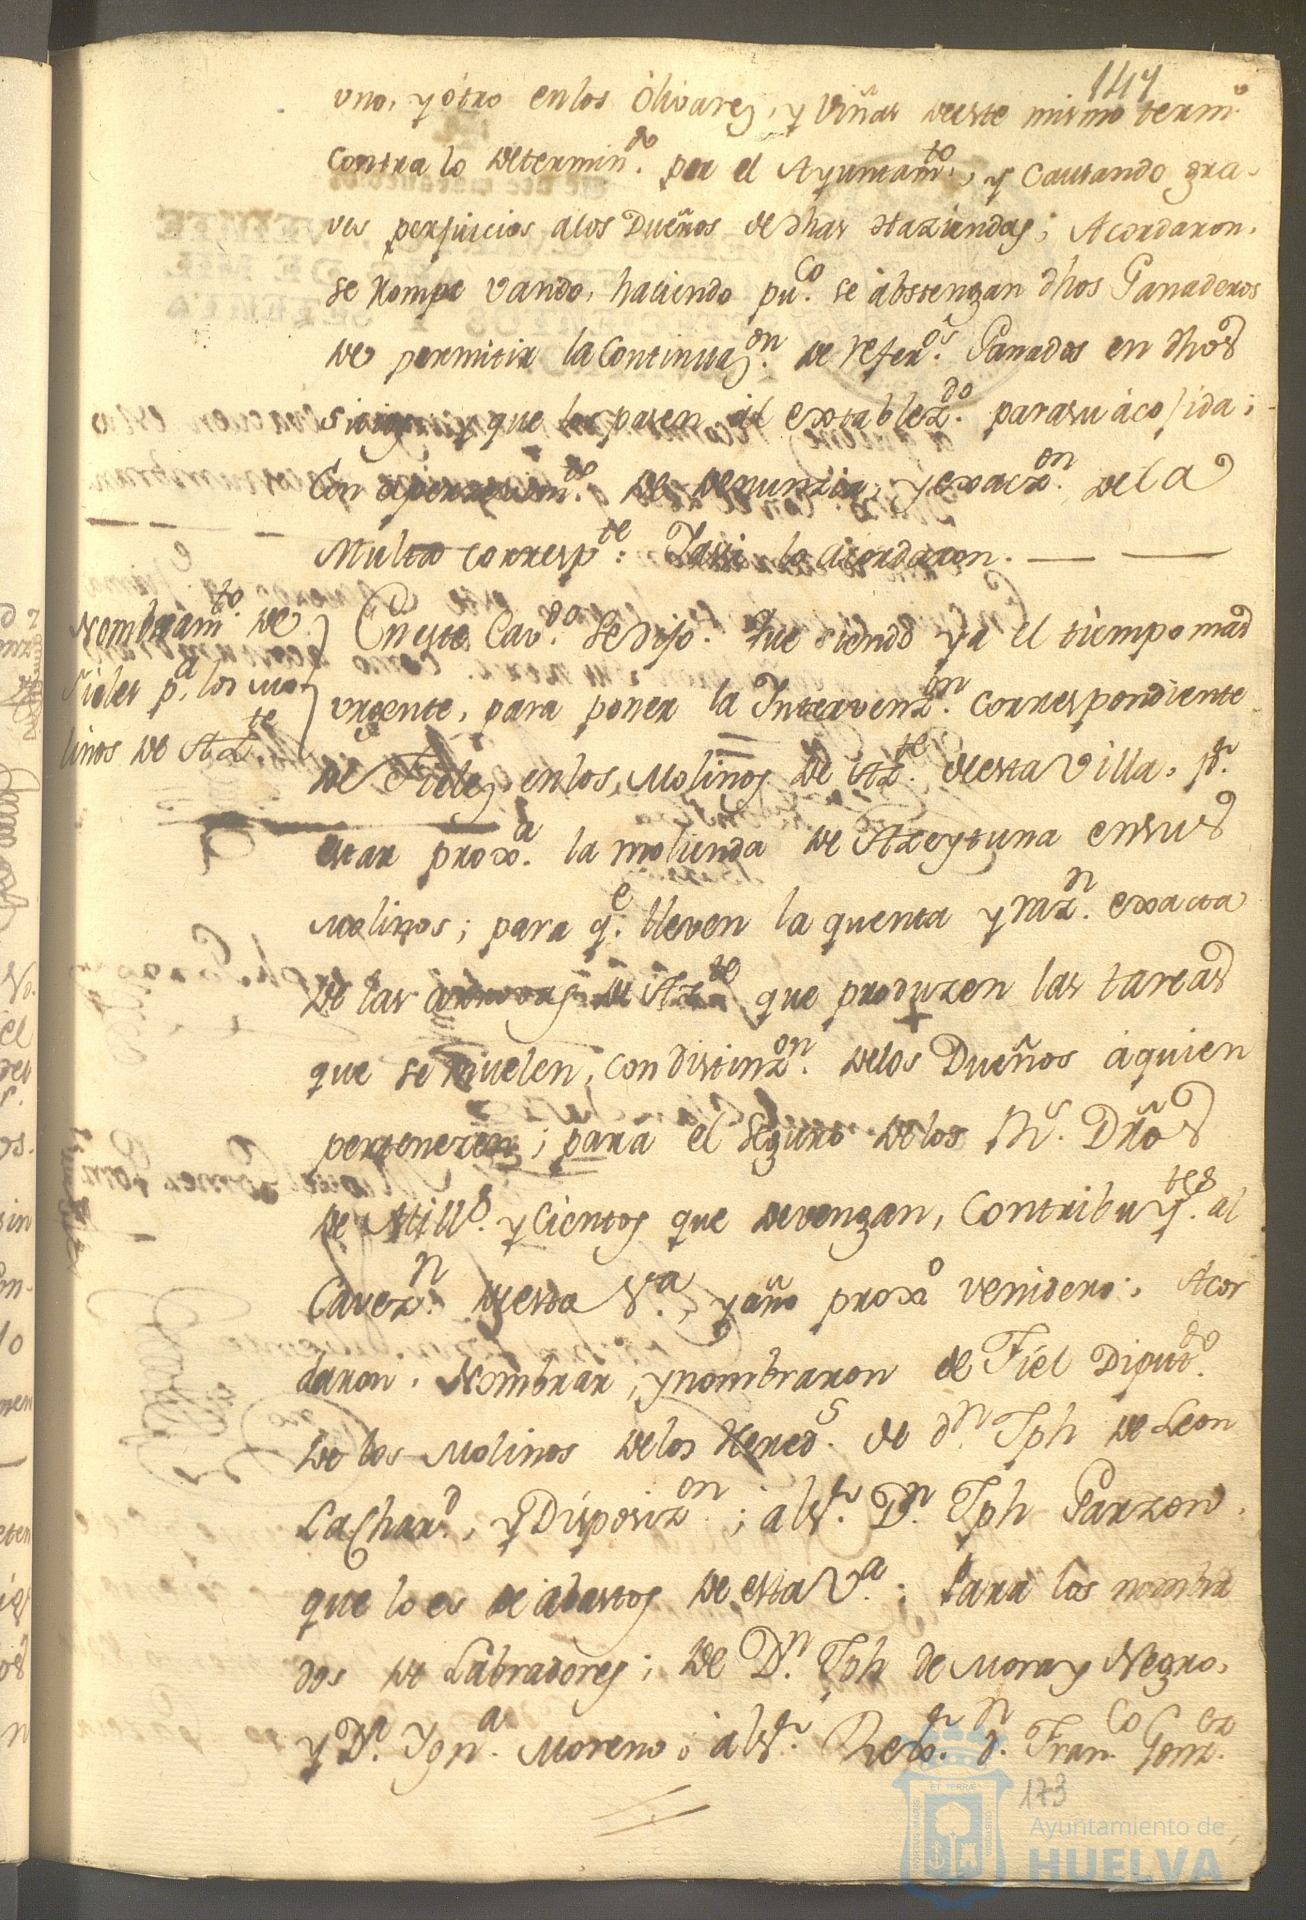 147
uno, y otro en los Olivares, y Viñas de este mismo term.º
contra lo determin.do por el Ayuntam.to, y causando gra-
ves perjuicios a los Dueños de dhas Haziendas; Acordaron,
se rompa vando, haciendo pu.co se abstengan dhos Ganaderos
de permitir la Continuaz.on de refer.os Ganados en dhos
sitios, y que los pasen al establez.do para su acojida;
Con aperzevim.to de denunzia, y exacz.on de la
Multa corresp.te: Y assi lo acordaron.
Nombram.to de
Fieles p.a los Mo-
linos de Az.te
En este Cav.do se dijo. Que siendo ya el tiempo mas
urgente, para poner la Intervenz.on correspondiente
de Fieles en los Molinos de Az.te de esta Villa, p.r
estar prox.a la molienda de Azeytuna en sus
Molinos; para q.e lleven la quenta y raz.n exacta
de las arrovas de Az.te que produzen las tareas
que se muelen, con distinz.on de los Dueños a quien
pertenezen; para el seguro de los R.s Dros
de Mill.s y Cientos que devengan, Contribuy.tes al
Cavez.n de esta V.a, y año proxº venidero; Acor
daron, Nombrar, y nombraron de Fiel Diput.do
de los Molinos de los Hered.s de d.n Jph de Leon
y Disposiz.on; al S.r D.n Jph Garzon,
que lo es de abastos de esta V.a: Para los nombra
dos de Labradores; de D.n Jph de Mora y Negro,
y D.n Moreno; al S.r Rex.or d.n Fran.co Gonz.ez
173
Ayuntamiento de
HUELVA